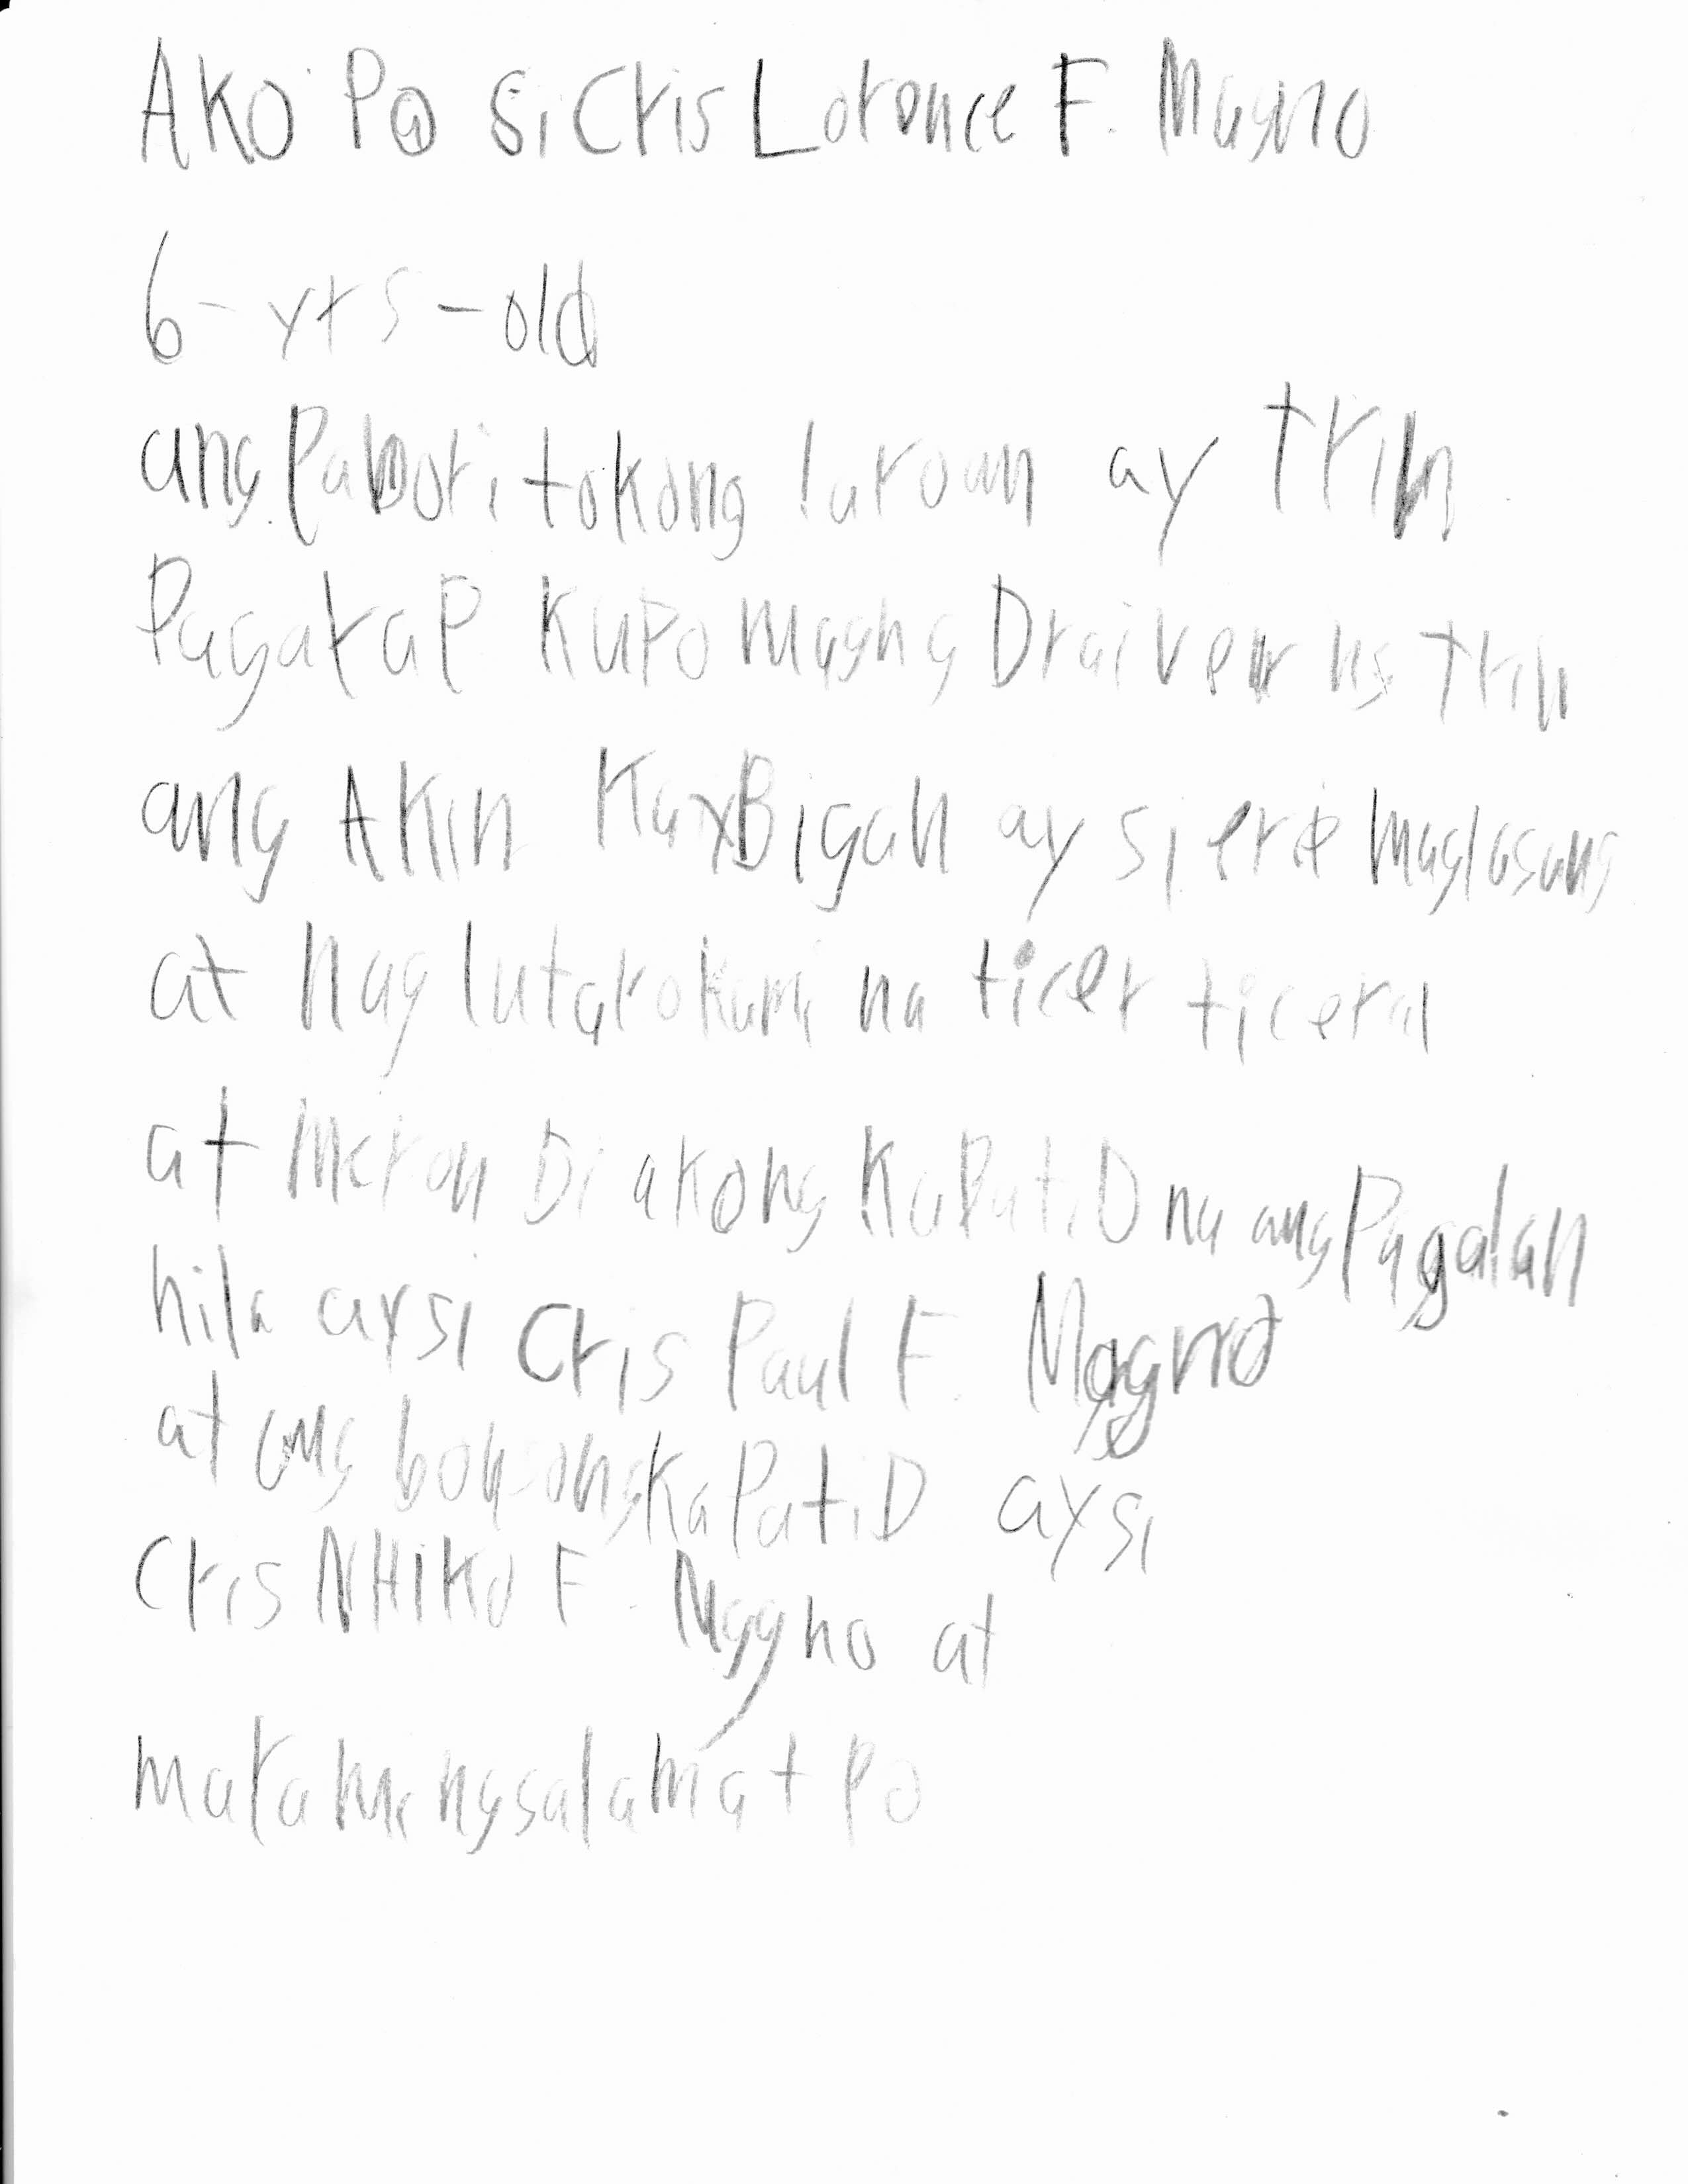 AKO Po Si Cris Lorence F. Magno
6-yrs-old
ang Paboritokong laroan ay trin
Pagarap KuPo magng Draiver ng trin
ang AKin KayBigan ay si eric maglasang
at nag lutarokami na ticer ticeran
at meron Di akong KaPatiD na ang Pagalan
nila aysi Cris Paul F. Magno
at ang bonsongKaPatiD aysi
Cris NHiKo F. Magno at
maramengsalamat Po